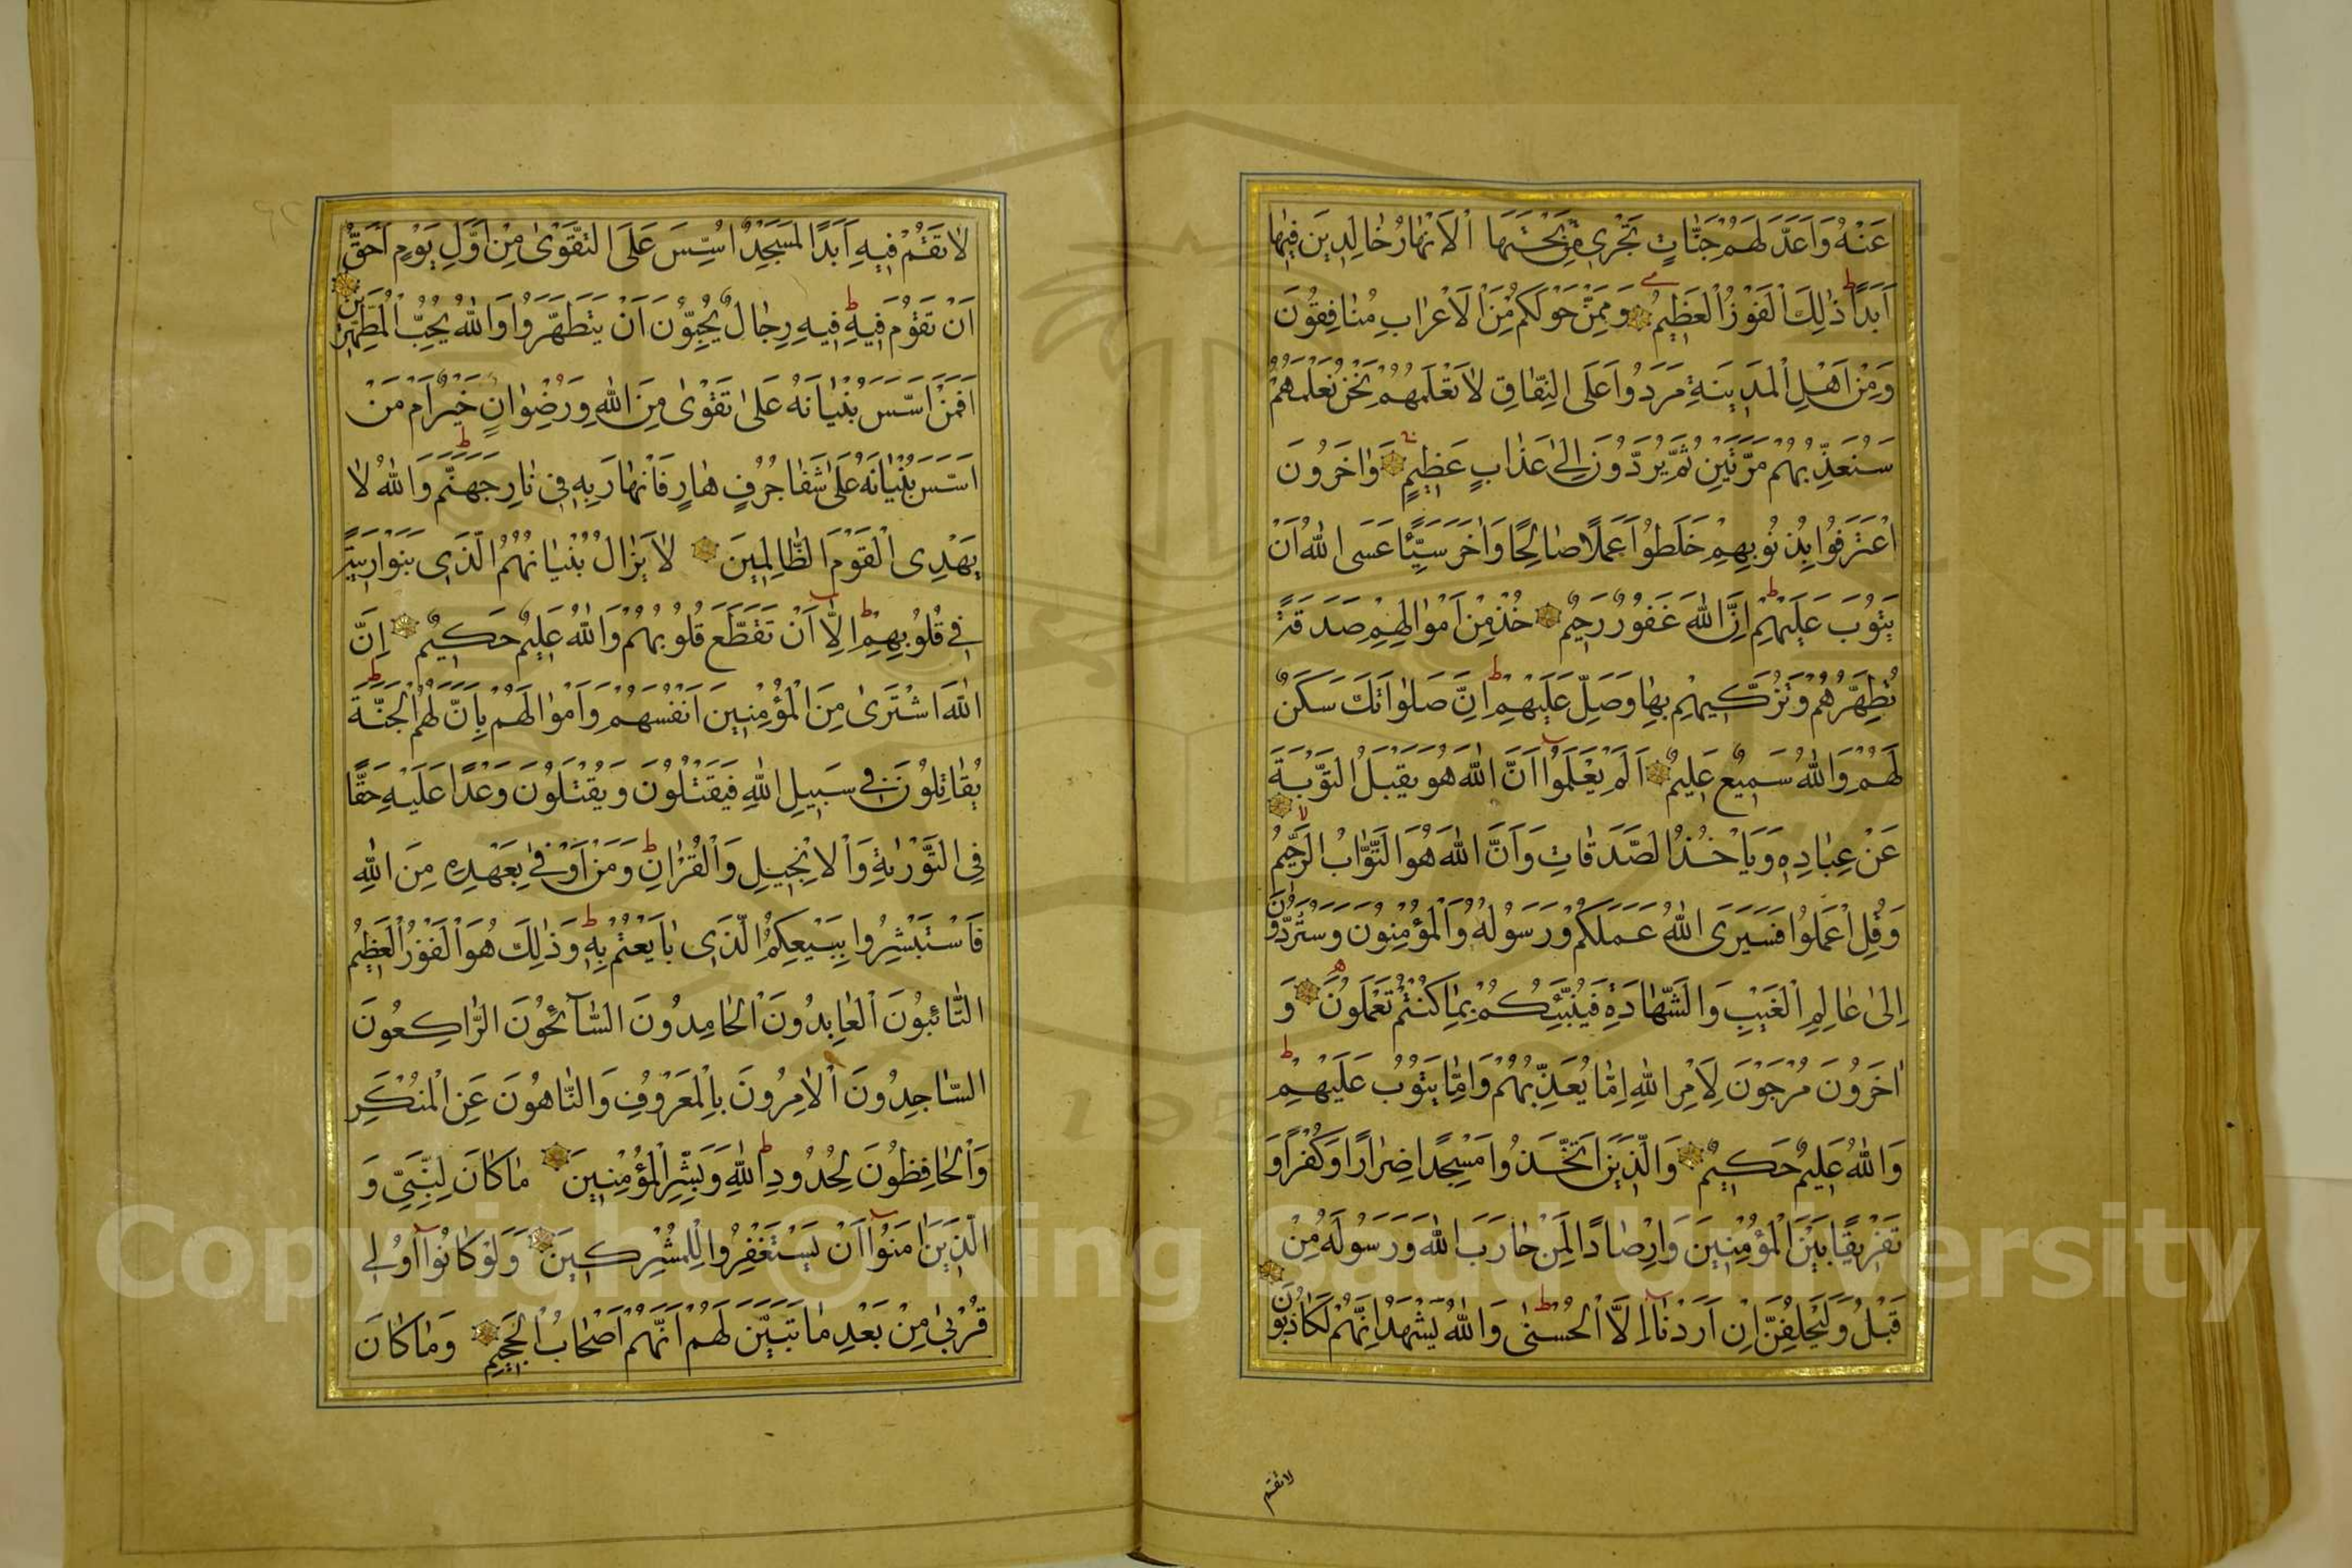 عَنْهُ وَاَعَدَّ لَهُمْ جَنَّاتٍ تَجْرِي مِنْ تَحْتِهَا الْاَنْهَارُ خَالِدِينَ فِيهَا
اَبَدًا ذٰلِكَ الْفَوْزُ الْعَظِيمُ وَمِمَّنْ حَوْلَكُمْ مِنَ الْاَعْرَابِ مُنَافِقُونَ
وَمِنْ اَهْلِ الْمَدِينَةِ مَرَدُوا عَلَى النِّفَاقِ لَا تَعْلَمُهُمْ نَحْنُ نَعْلَمُهُمْ
سَنُعَذِّبُهُمْ مَرَّتَيْنِ ثُمَّ يُرَدُّونَ اِلٰى عَذَابٍ عَظِيمٍ وَاٰخَرُونَ
اعْتَرَفُوا بِذُنُوبِهِمْ خَلَطُوا عَمَلًا صَالِحًا وَاٰخَرَ سَيِّئًا عَسَى اللّٰهُ اَنْ
يَتُوبَ عَلَيْهِمْ اِنَّ اللّٰهَ غَفُورٌ رَحِيمٌ خُذْ مِنْ اَمْوَالِهِمْ صَدَقَةً
تُطَهِّرُهُمْ وَتُزَكِّيهِمْ بِهَا وَصَلِّ عَلَيْهِمْ اِنَّ صَلَوَاتَكَ سَكَنٌ
لَهُمْ وَاللّٰهُ سَمِيعٌ عَلِيمٌ اَلَمْ يَعْلَمُوا اَنَّ اللّٰهَ هُوَ يَقْبَلُ التَّوْبَةَ
عَنْ عِبَادِهِ وَيَاْخُذُ الصَّدَقَاتِ وَاَنَّ اللّٰهَ هُوَ التَّوَّابُ الرَّحِيمُ
وَقُلِ اعْمَلُوا فَسَيَرَى اللّٰهُ عَمَلَكُمْ وَرَسُولُهُ وَالْمُؤْمِنُونَ وَسَتُرَدُّونَ
اِلٰى عَالِمِ الْغَيْبِ وَالشَّهَادَةِ فَيُنَبِّئُكُمْ بِمَا كُنْتُمْ تَعْمَلُونَ وَ
اٰخَرُونَ مُرْجَوْنَ لِاَمْرِ اللّٰهِ اِمَّا يُعَذِّبُهُمْ وَاِمَّا يَتُوبُ عَلَيْهِمْ
وَاللّٰهُ عَلِيمٌ حَكِيمٌ وَالَّذِينَ اتَّخَذُوا مَسْجِدًا ضِرَارًا وَكُفْرًا وَ
تَفْرِيقًا بَيْنَ الْمُؤْمِنِينَ وَاِرْصَادًا لِمَنْ حَارَبَ اللّٰهَ وَرَسُولَهُ مِنْ
قَبْلُ وَلَيَحْلِفُنَّ اِنْ اَرَدْنَا اِلَّا الْحُسْنٰى وَاللّٰهُ يَشْهَدُ اِنَّهُمْ لَكَاذِبُونَ
لا تقم
لَا تَقُمْ فِيهِ اَبَدًا لَمَسْجِدٌ اُسِّسَ عَلَى التَّقْوٰى مِنْ اَوَّلِ يَوْمٍ اَحَقُّ
اَنْ تَقُومَ فِيهِ فِيهِ رِجَالٌ يُحِبُّونَ اَنْ يَتَطَهَّرُوا وَاللّٰهُ يُحِبُّ الْمُطَّهِّرِينَ
اَفَمَنْ اَسَّسَ بُنْيَانَهُ عَلٰى تَقْوٰى مِنَ اللّٰهِ وَرِضْوَانٍ خَيْرٌ اَمْ مَنْ
اَسَّسَ بُنْيَانَهُ عَلٰى شَفَا جُرُفٍ هَارٍ فَانْهَارَ بِهِ فِي نَارِ جَهَنَّمَ وَاللّٰهُ لَا
يَهْدِى الْقَوْمَ الظَّالِمِينَ لَا يَزَالُ بُنْيَانُهُمُ الَّذِى بَنَوْا رِيبَةً
فِي قُلُوبِهِمْ اِلَّا اَنْ تَقَطَّعَ قُلُوبُهُمْ وَاللّٰهُ عَلِيمٌ حَكِيمٌ اِنَّ
اللّٰهَ اشْتَرٰى مِنَ الْمُؤْمِنِينَ اَنْفُسَهُمْ وَاَمْوَالَهُمْ بِاَنَّ لَهُمُ الْجَنَّةَ
يُقَاتِلُونَ فِي سَبِيلِ اللّٰهِ فَيَقْتُلُونَ وَيُقْتَلُونَ وَعْدًا عَلَيْهِ حَقًّا
فِي التَّوْرٰيةِ وَالْاِنْجِيلِ وَالْقُرْاٰنِ وَمَنْ اَوْفٰى بِعَهْدِهِ مِنَ اللّٰهِ
فَاسْتَبْشِرُوا بِبَيْعِكُمُ الَّذِى بَايَعْتُمْ بِهِ وَذٰلِكَ هُوَ الْفَوْزُ الْعَظِيمُ
التَّائِبُونَ الْعَابِدُونَ الْحَامِدُونَ السَّائِحُونَ الرَّاكِعُونَ
السَّاجِدُونَ الْاٰمِرُونَ بِالْمَعْرُوفِ وَالنَّاهُونَ عَنِ الْمُنْكَرِ
وَالْحَافِظُونَ لِحُدُودِ اللّٰهِ وَبَشِّرِ الْمُؤْمِنِينَ مَا كَانَ لِلنَّبِيِّ وَ
الَّذِينَ اٰمَنُوا اَنْ يَسْتَغْفِرُوا لِلْمُشْرِكِينَ وَلَوْ كَانُوا اُولِي
قُرْبٰى مِنْ بَعْدِ مَا تَبَيَّنَ لَهُمْ اَنَّهُمْ اَصْحَابُ الْجَحِيمِ وَمَا كَانَ
Copyright © King Saud University
195